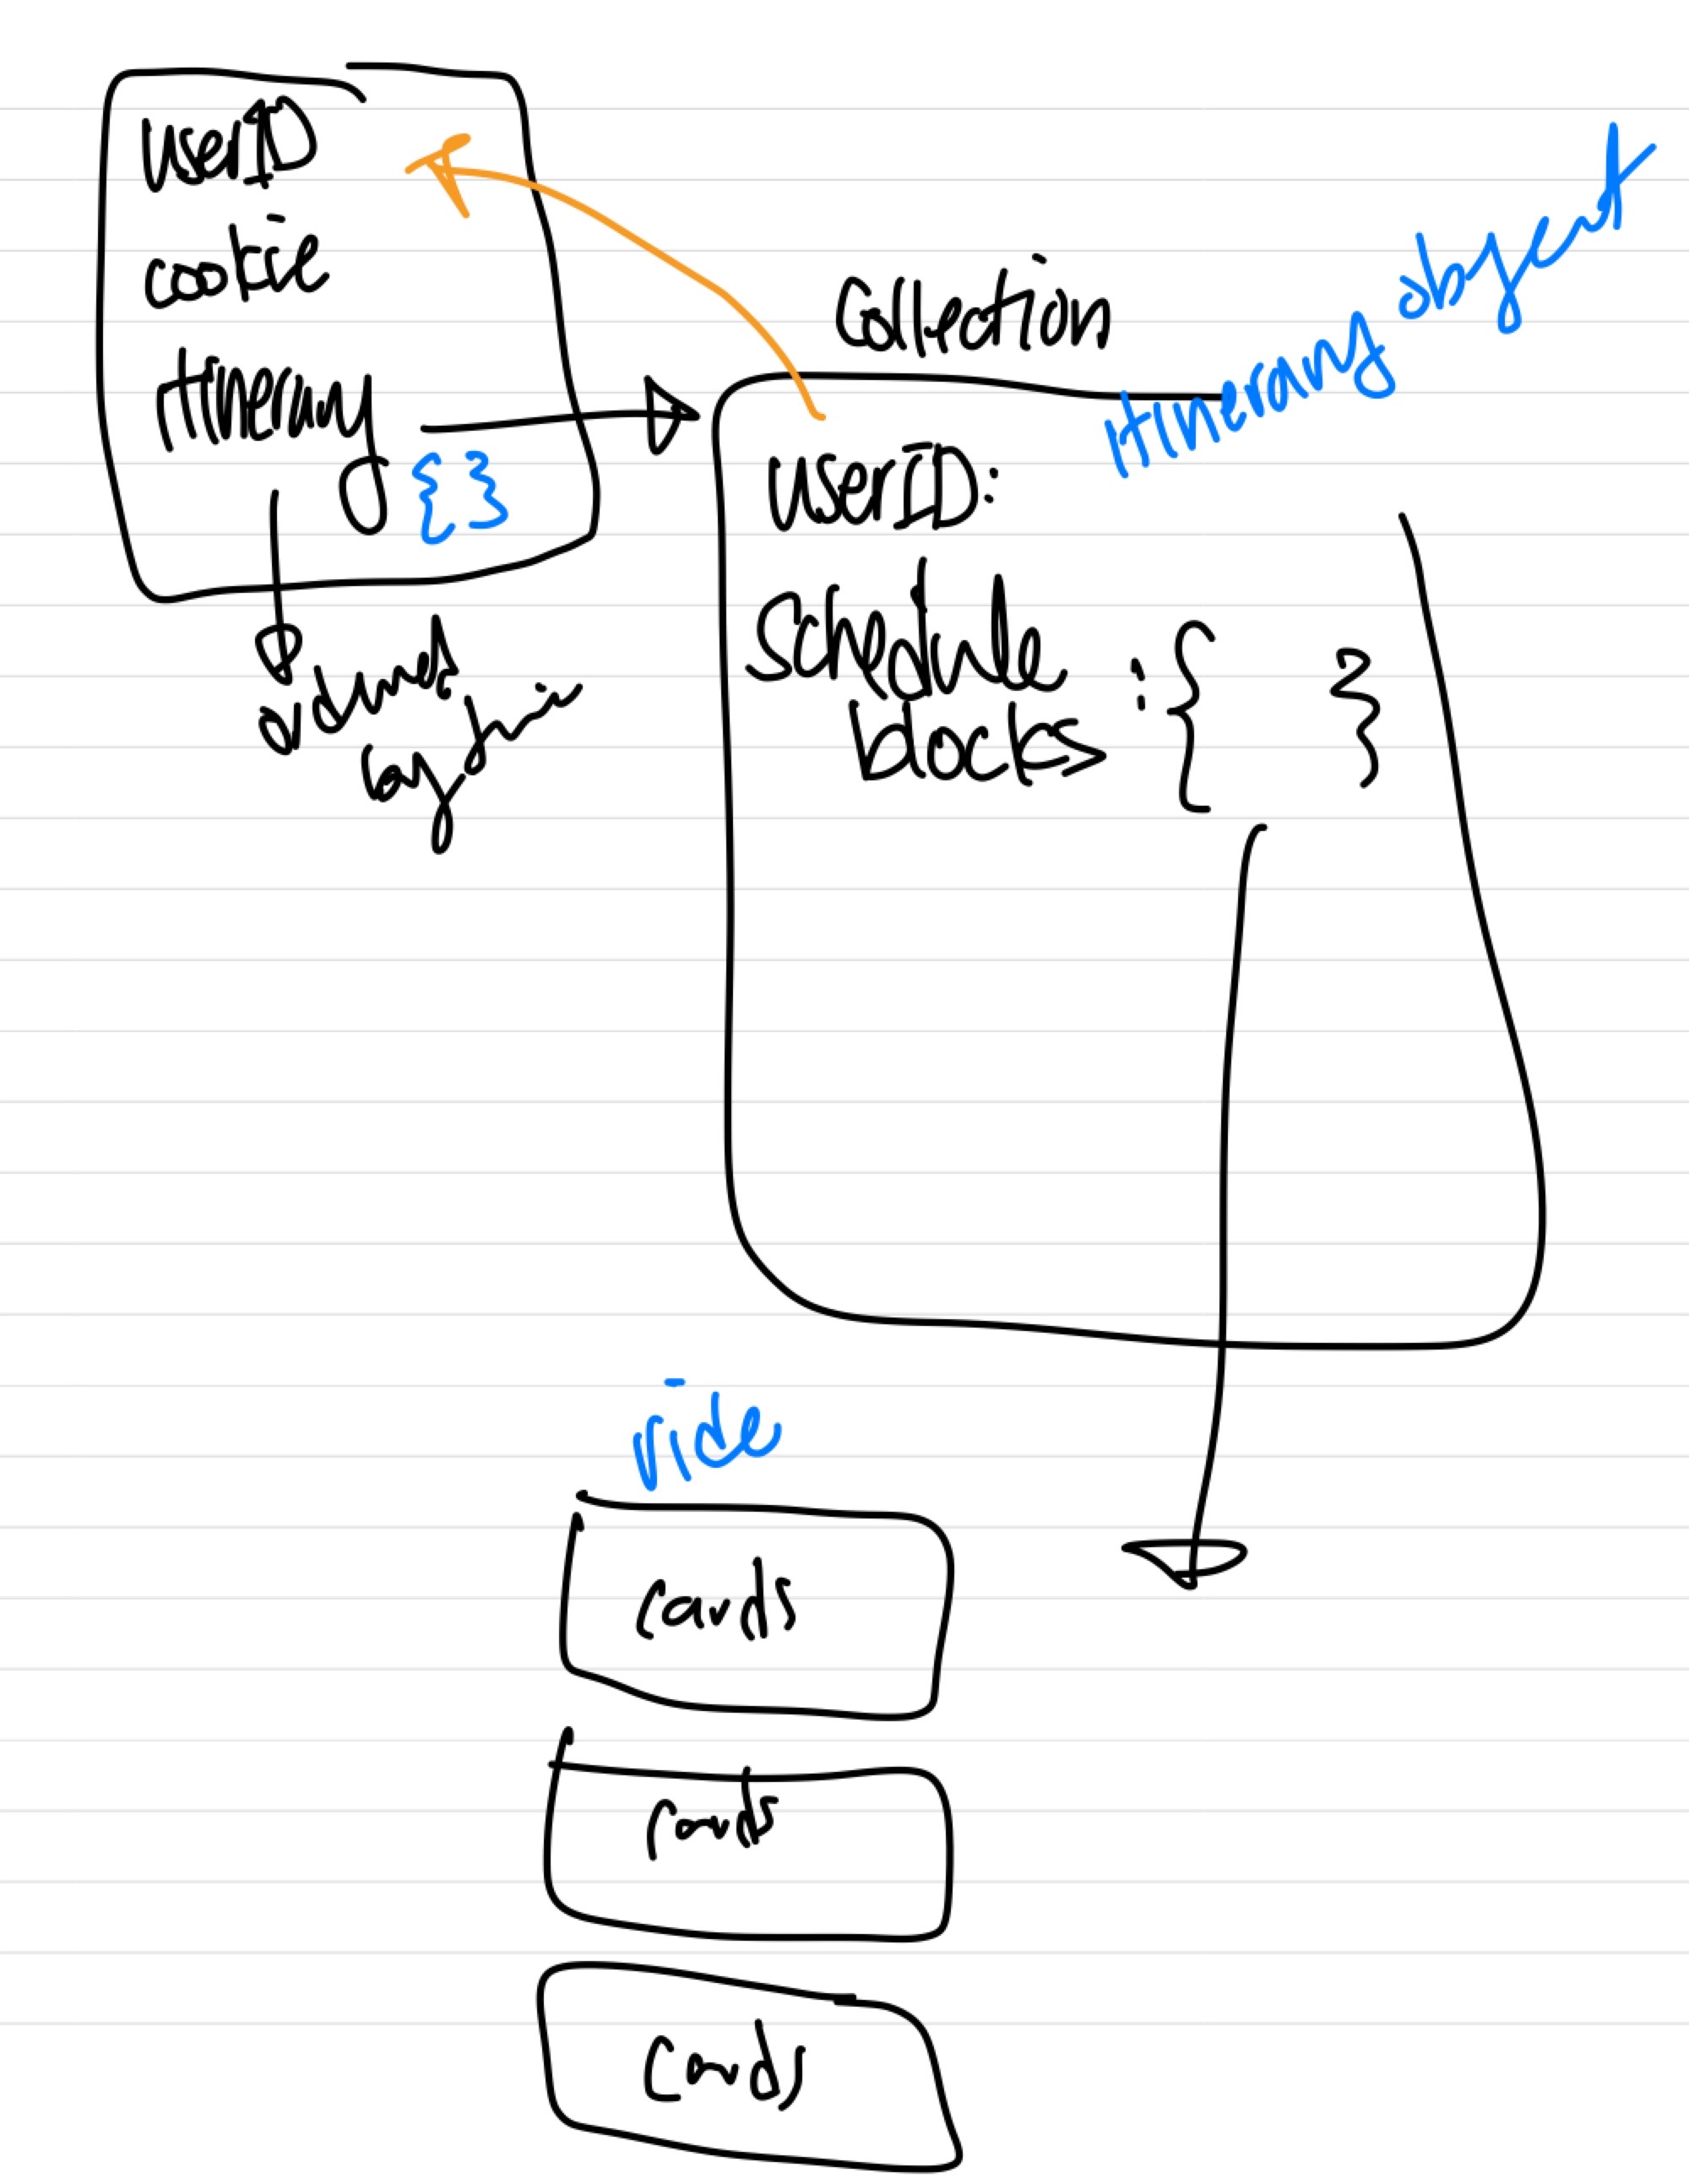 userID
cookie
itinerary {}
by
Collection
itinerary object
userID:
schedule
blocks : { }
ride
cards
cards
cards